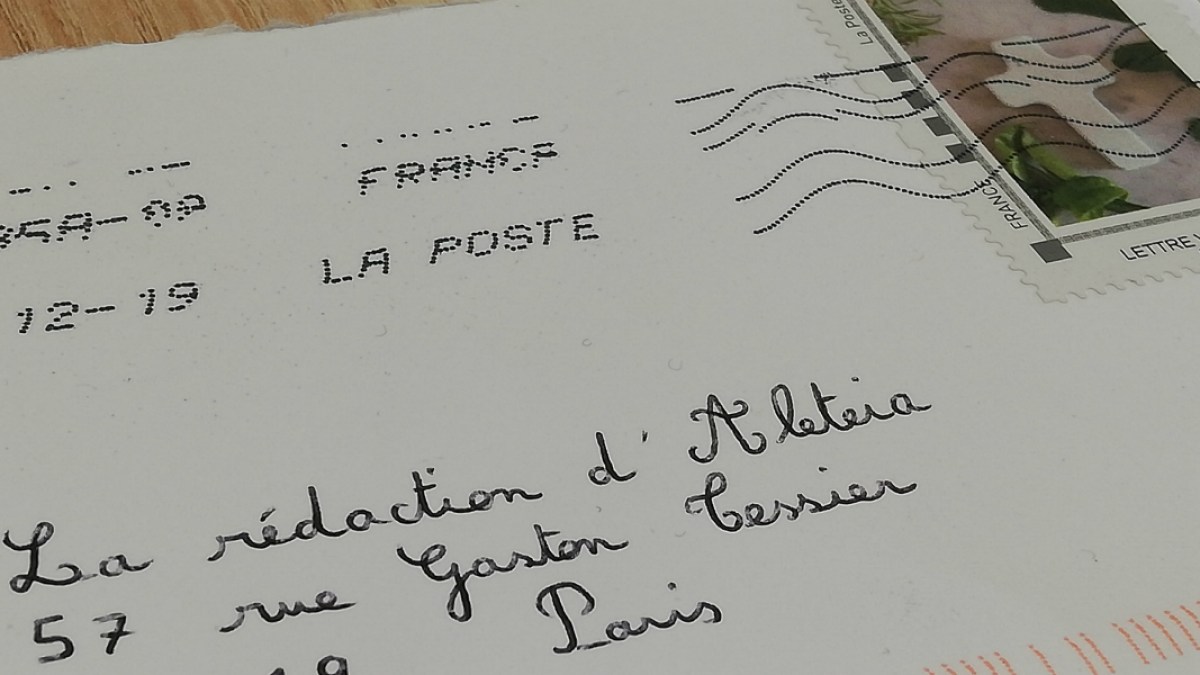 La Poste
FRANCE
FRANCE
LETTRE
LA POSTE
12-19
La rédaction d'Aleteia
57 rue Gaston Tessier
19 Paris